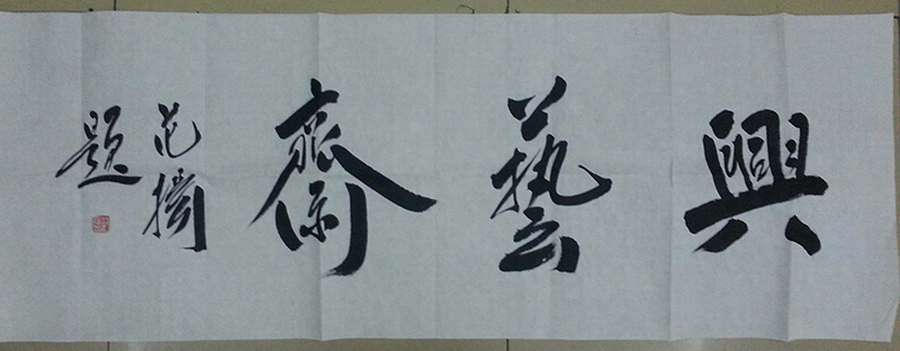 興藝齋
范擕
題